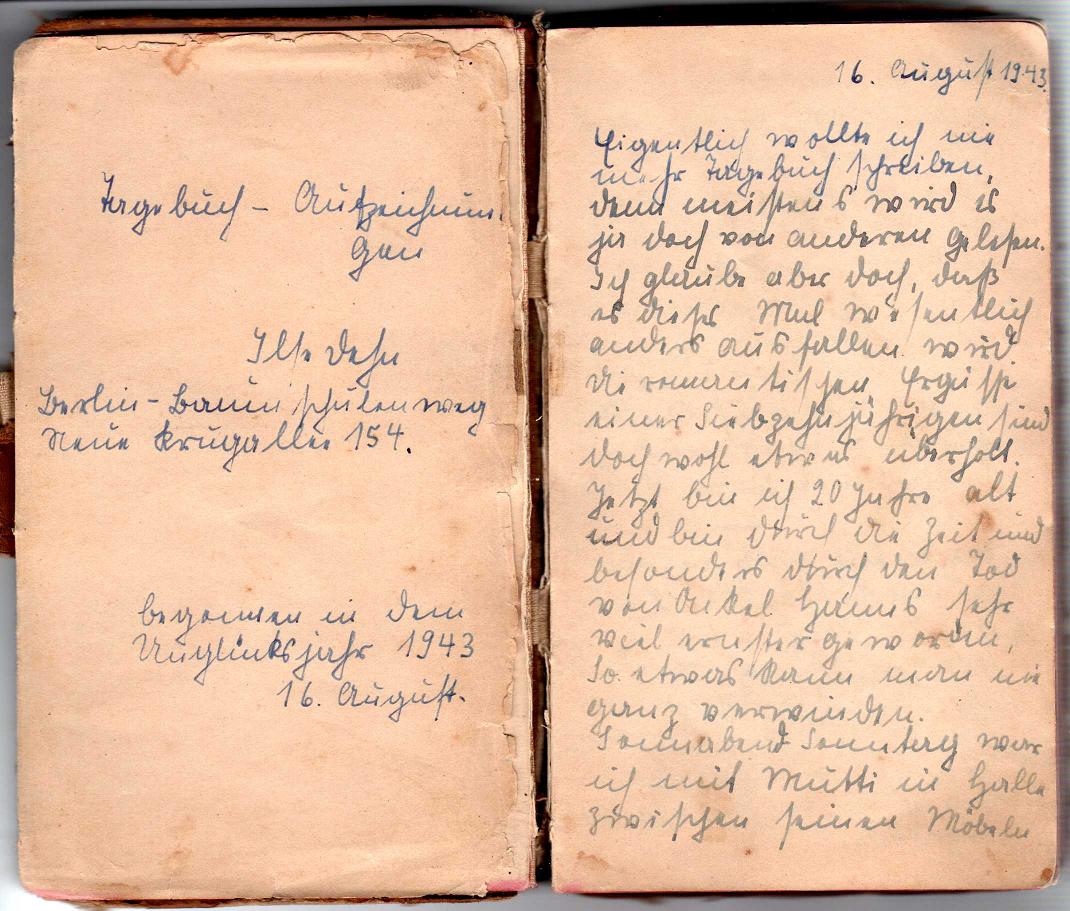 Tagebuch - Aufzeichnun-
gen
Ilse Dehn
Berlin - Baumschulenweg
Neue Krugallee 154.
begonnen in dem
Unglücksjahr 1943
16. August.
16. August 1943.
Eigentlich wollte ich nie
mehr Tagebuch schreiben,
denn meistens wird es
ja doch von anderen gelesen.
Ich glaube aber doch, daß
es dieses Mal wesentlich
anders ausfallen wird.
Die romantischen Ergüsse
einer Siebzehnjährigen sind
doch wohl etwas überholt.
Jetzt bin ich 20 Jahre alt
und bin durch die Zeit und
besonders durch den Tod
von Onkel Hanns sehr
viel ernster geworden.
So etwas kann man nie
ganz verwinden.
Sonnabend Sonntag war
ich mit Mutti in Halle
zwischen seinen Möbeln